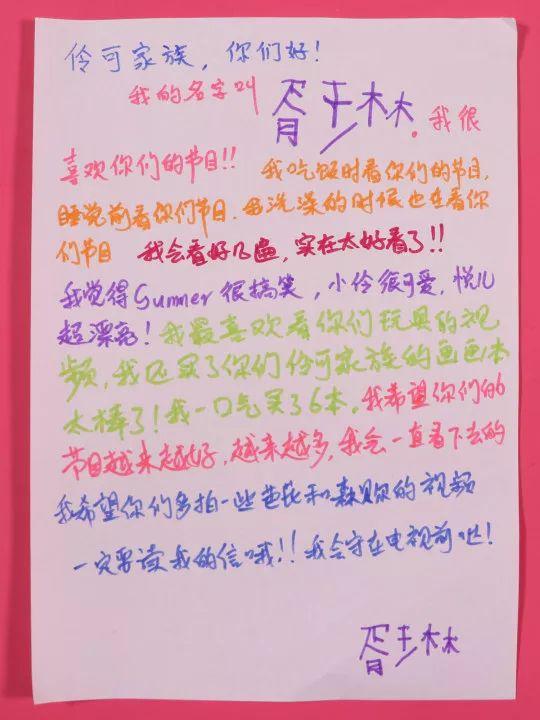 伶可家族，你们好！
我的名字叫 胥于林。我很
喜欢你们的节目!! 我吃饭时看你们的节目，
睡觉前看你们节目，洗澡的时候也在看你
们节目 我会看好几遍，实在太好看了!!
我觉得Summer很搞笑，小伶很可爱，悦儿
超漂亮！我最喜欢看你们玩具的视
频，我还买了你们伶可家族的画画本
太棒了！我一口气买了6本。我希望你们的
节目越来越好，越来越多，我会一直看下去的
我希望你们多拍一些芭比和森贝尔的视频
一定要读我的信哦!! 我会守在电视前吔！